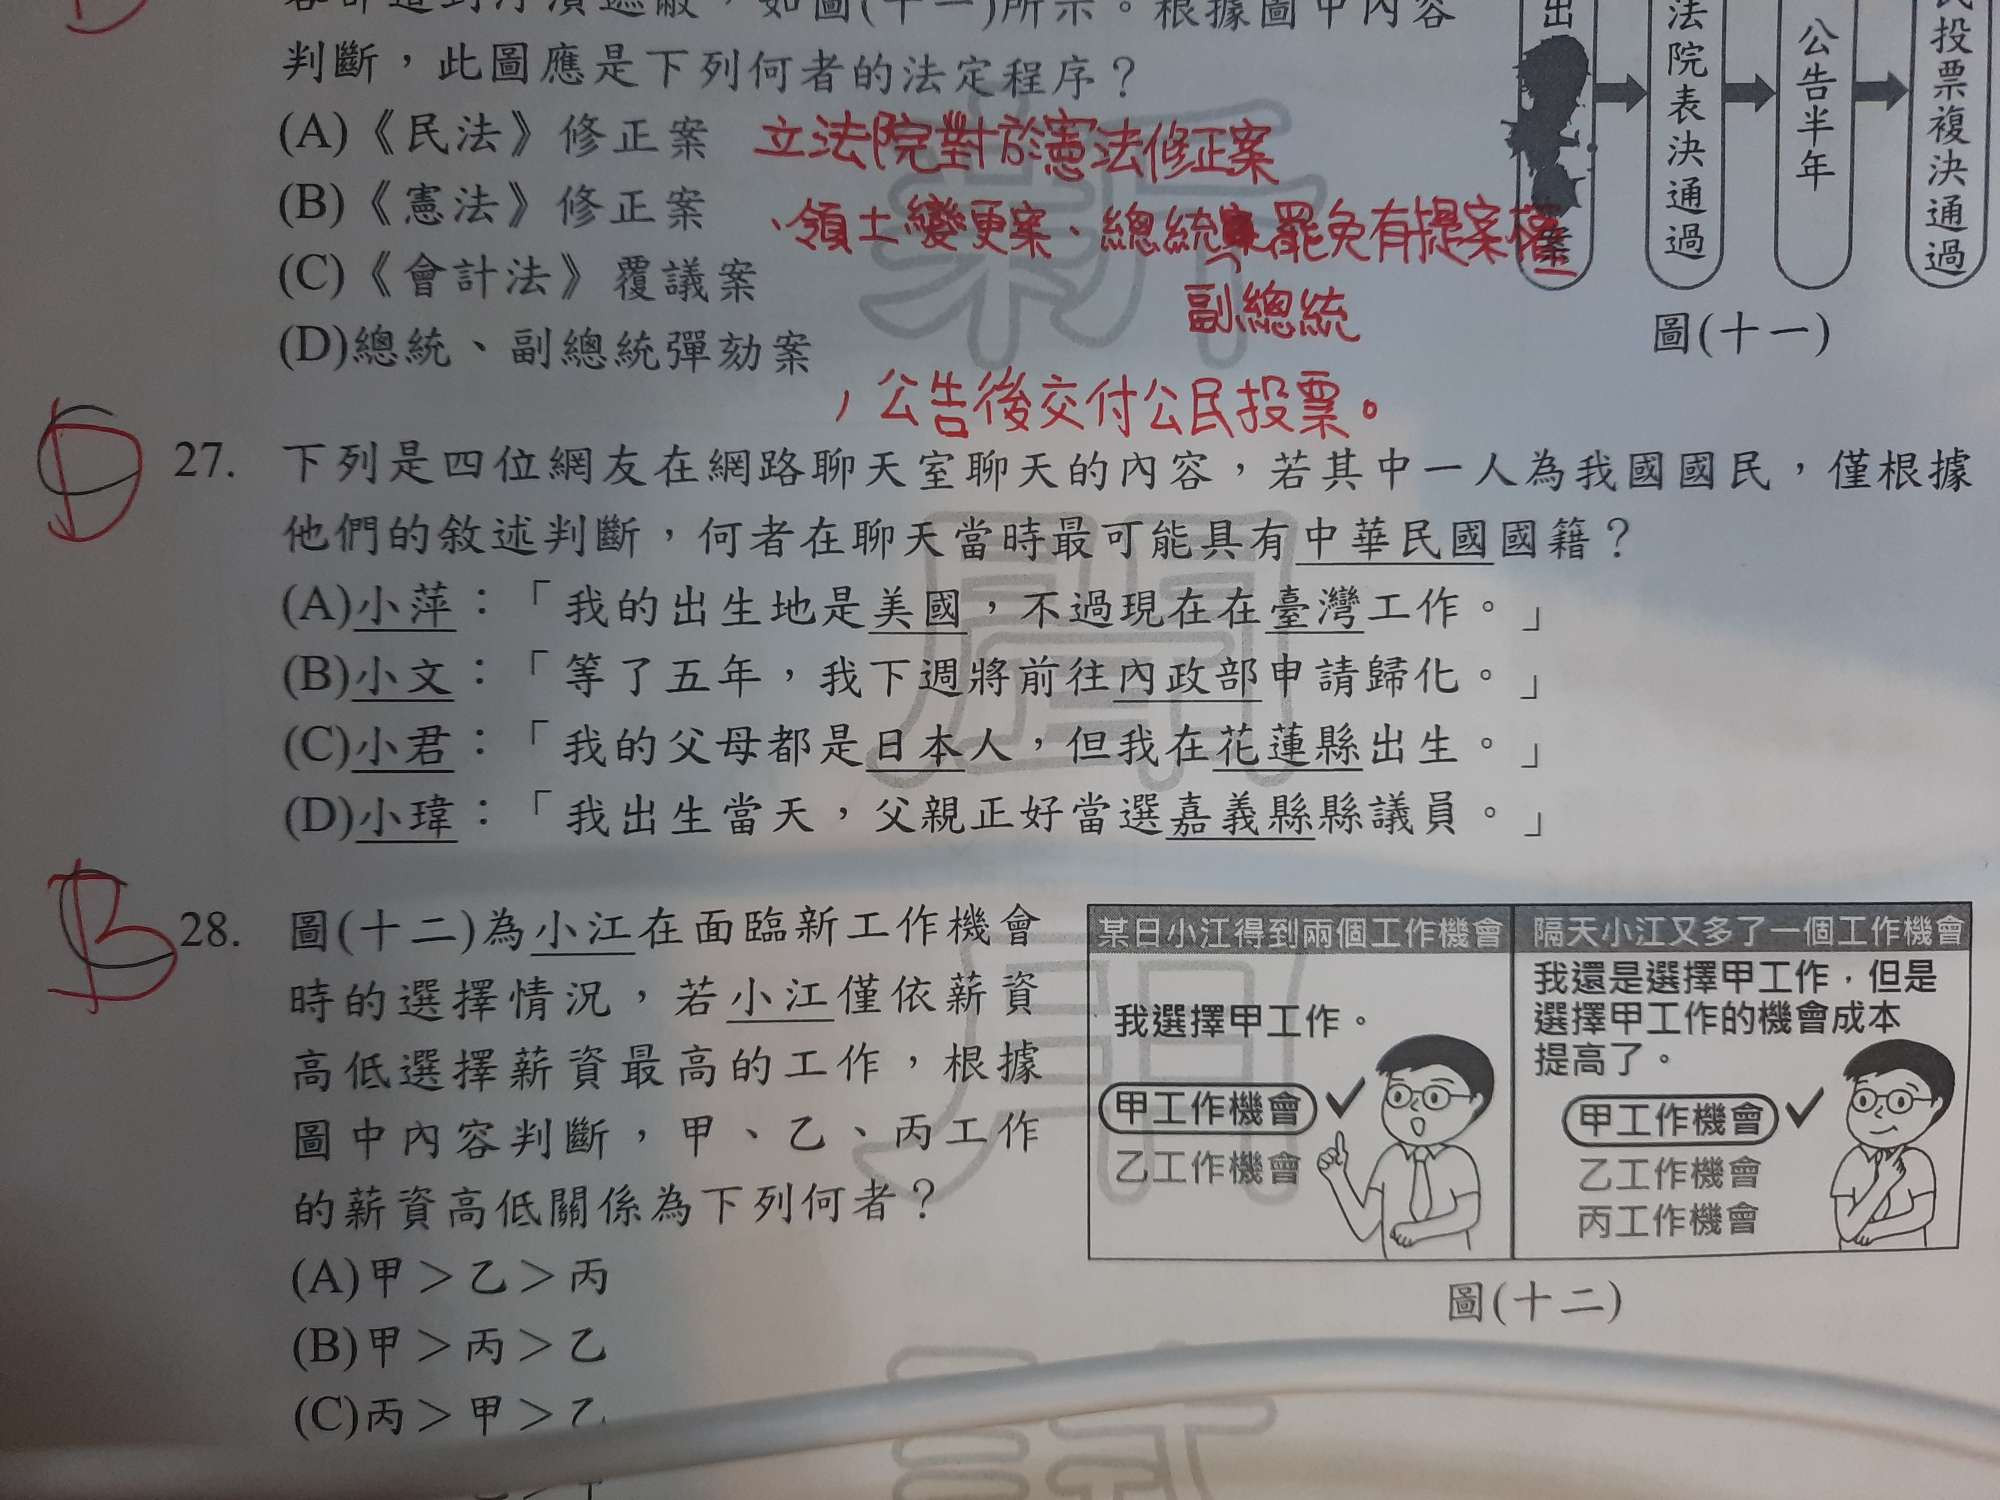 容卻遭到污漬遮蔽，如圖(十一)所示。根據圖中內容
判斷，此圖應是下列何者的法定程序？
(A)《民法》修正案
(B)《憲法》修正案
(C)《會計法》覆議案
(D)總統、副總統彈劾案
立法院對於憲法修正案
、領土變更案、總統罷免有提案權
副總統
，公告後交付公民投票。
出
案
法院表決通過
公告半年
民投票複決通過
圖(十一)
D
27. 下列是四位網友在網路聊天室聊天的內容，若其中一人為我國國民，僅根據
他們的敘述判斷，何者在聊天當時最可能具有中華民國國籍？
(A)小萍：「我的出生地是美國，不過現在在臺灣工作。」
(B)小文：「等了五年，我下週將前往內政部申請歸化。」
(C)小君：「我的父母都是日本人，但我在花蓮縣出生。」
(D)小瑋：「我出生當天，父親正好當選嘉義縣縣議員。」
B
28. 圖(十二)為小江在面臨新工作機會
時的選擇情況，若小江僅依薪資
高低選擇薪資最高的工作，根據
圖中內容判斷，甲、乙、丙工作
的薪資高低關係為下列何者？
(A)甲＞乙＞丙
(B)甲＞丙＞乙
(C)丙＞甲＞乙
某日小江得到兩個工作機會
我選擇甲工作。
甲工作機會
乙工作機會
隔天小江又多了一個工作機會
我還是選擇甲工作，但是
選擇甲工作的機會成本
提高了。
甲工作機會
乙工作機會
丙工作機會
圖(十二)